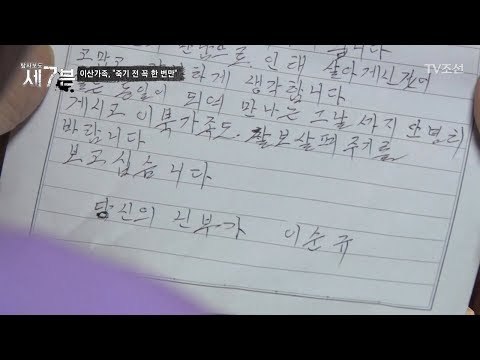 탐사보도
세7븐
이산가족, "죽기 전 꼭 한 번만"
TV조선
살아게신것이
고맙고 하게 생각합니다
통일이 되여 만나는 그날 까지 안녕히
게시고 이북가족도 잘보살펴 주기를
바랍니다
보고십습니다
당신의 신부가 이순규